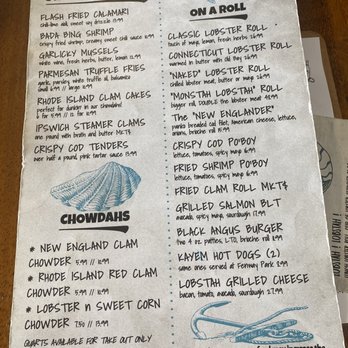 FLASH FRIED CALAMARI
BADA BING SHRIMP
crispy fried shrimp, creamy sweet chili sauce
GARLICKY MUSSELS
white wine, fresh herbs, butter, lemon
PARMESAN TRUFFLE FRIES
garlic, parsley, white truffle oil, balsamic
RHODE ISLAND CLAM CAKES
perfect for dunkin' in our chowdahs!
IPSWICH STEAMER CLAMS
one pound with broth and butter MKT$
CRISPY COD TENDERS
over half a pound, pink tartar sauce
CHOWDAHS
* NEW ENGLAND CLAM
CHOWDER 5.99 // 11.99
* RHODE ISLAND RED CLAM
CHOWDER 5.99 // 11.99
* LOBSTER n SWEET CORN
CHOWDER 7.50 // 13.99
QUARTS AVAILABLE FOR TAKE OUT ONLY
ON A ROLL
CLASSIC LOBSTER ROLL
touch of mayo, lemon, fresh herbs
CONNECTICUT LOBSTER ROLL
warmed in butter with old bay
"NAKED" LOBSTER ROLL
chilled lobster meat, butter or mayo
"MONSTAH LOBSTAH" ROLL
bigger roll, DOUBLE the lobster meat
THE "NEW ENGLANDER"
panko breaded cod filet, American cheese, lettuce,
onions, brioche roll
CRISPY COD PO'BOY
lettuce, tomatoes, spicy mayo
FRIED SHRIMP PO'BOY
lettuce, tomatoes, spicy mayo
FRIED CLAM ROLL MKT$
GRILLED SALMON BLT
avocado, spicy mayo, sourdough 17.99
BLACK ANGUS BURGER
two 4 oz. patties, LTO, brioche roll
KAYEM HOT DOGS (2)
same ones served at Fenway Park
LOBSTAH GRILLED CHEESE
bacon, tomato, avocado, sourdough 27.99